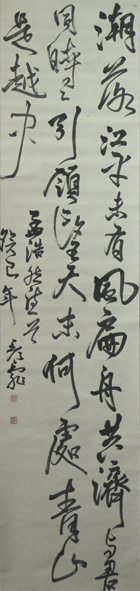 潮落江平未有風扁舟共濟與君
同時時引領望天末何處青山
是越中
孟浩然
癸巳年